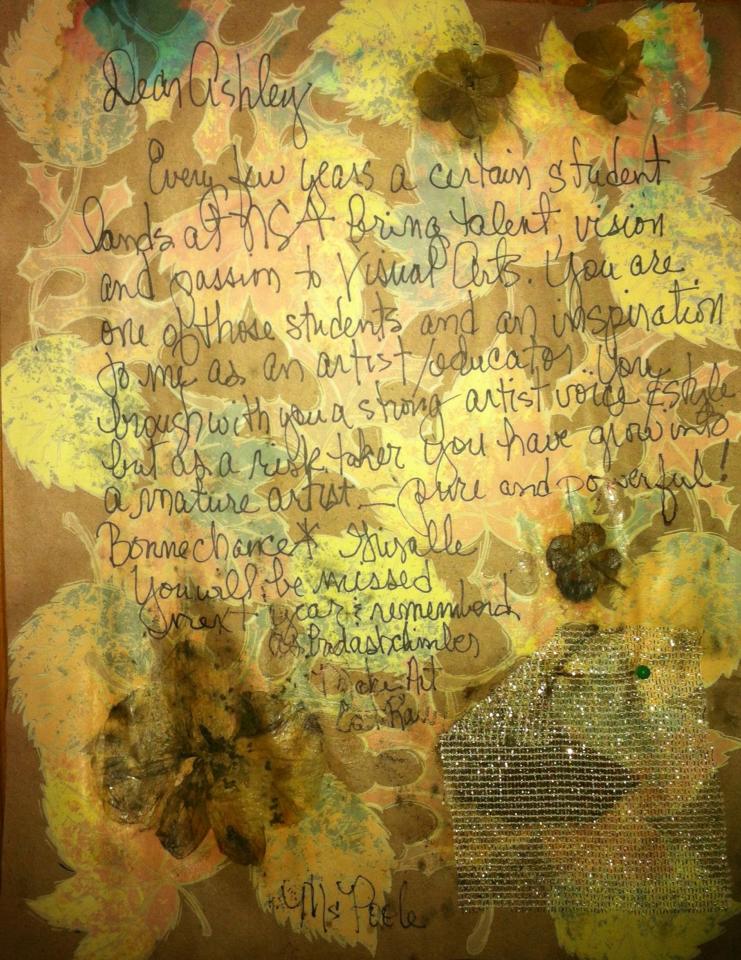 Dear Ashley
Every few years a certain student
lands at NSA bring talent, vision
and passion to Visual Arts. You are
one of those students and an inspiration
to me as an artist/educator. You
brough with you a strong artist voice & style
but as a risk taker you have grow into
a mature artist — pure and powerful!
Bonne chance*
You will be missed
next year & remembered
as
Make Art
Eat Raw
Ms Peele